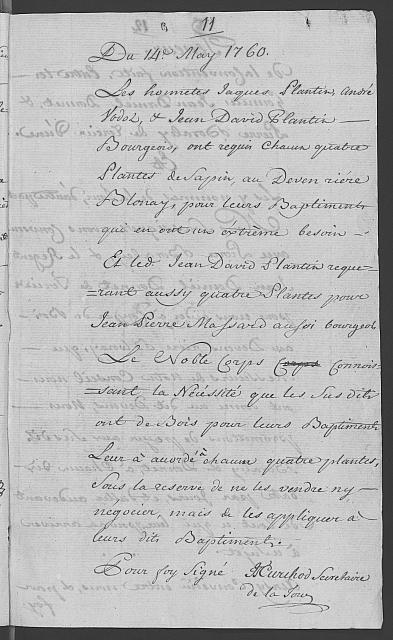 11
Du 14.e May 1760.
Les honnetes Jaques Plantin, André
Vodoz, & Jean David Plantin
Bourgeois, ont requis chaun quatre
Plantes de Sapin, au Deven riére
Blonay, pour leurs Baptiments
que en ont un extrème besoin
Et led. Jean David Plantin reque-
=rant aussy quatre Plantes pour
Jean Pierre Massard aussi bourgeois
Le Noble Corps Corps Connois-
=sant la Nécéssité que les Sus dits
ont de Bois pour leurs Baptiments
Leur à acordé à chaun quatre plantes,
sous la reserve de ne les vendre ny
negocier, mais de les appliquer à
leurs dits Baptiments.
Pour foy Signé Secretaire
de la Tour